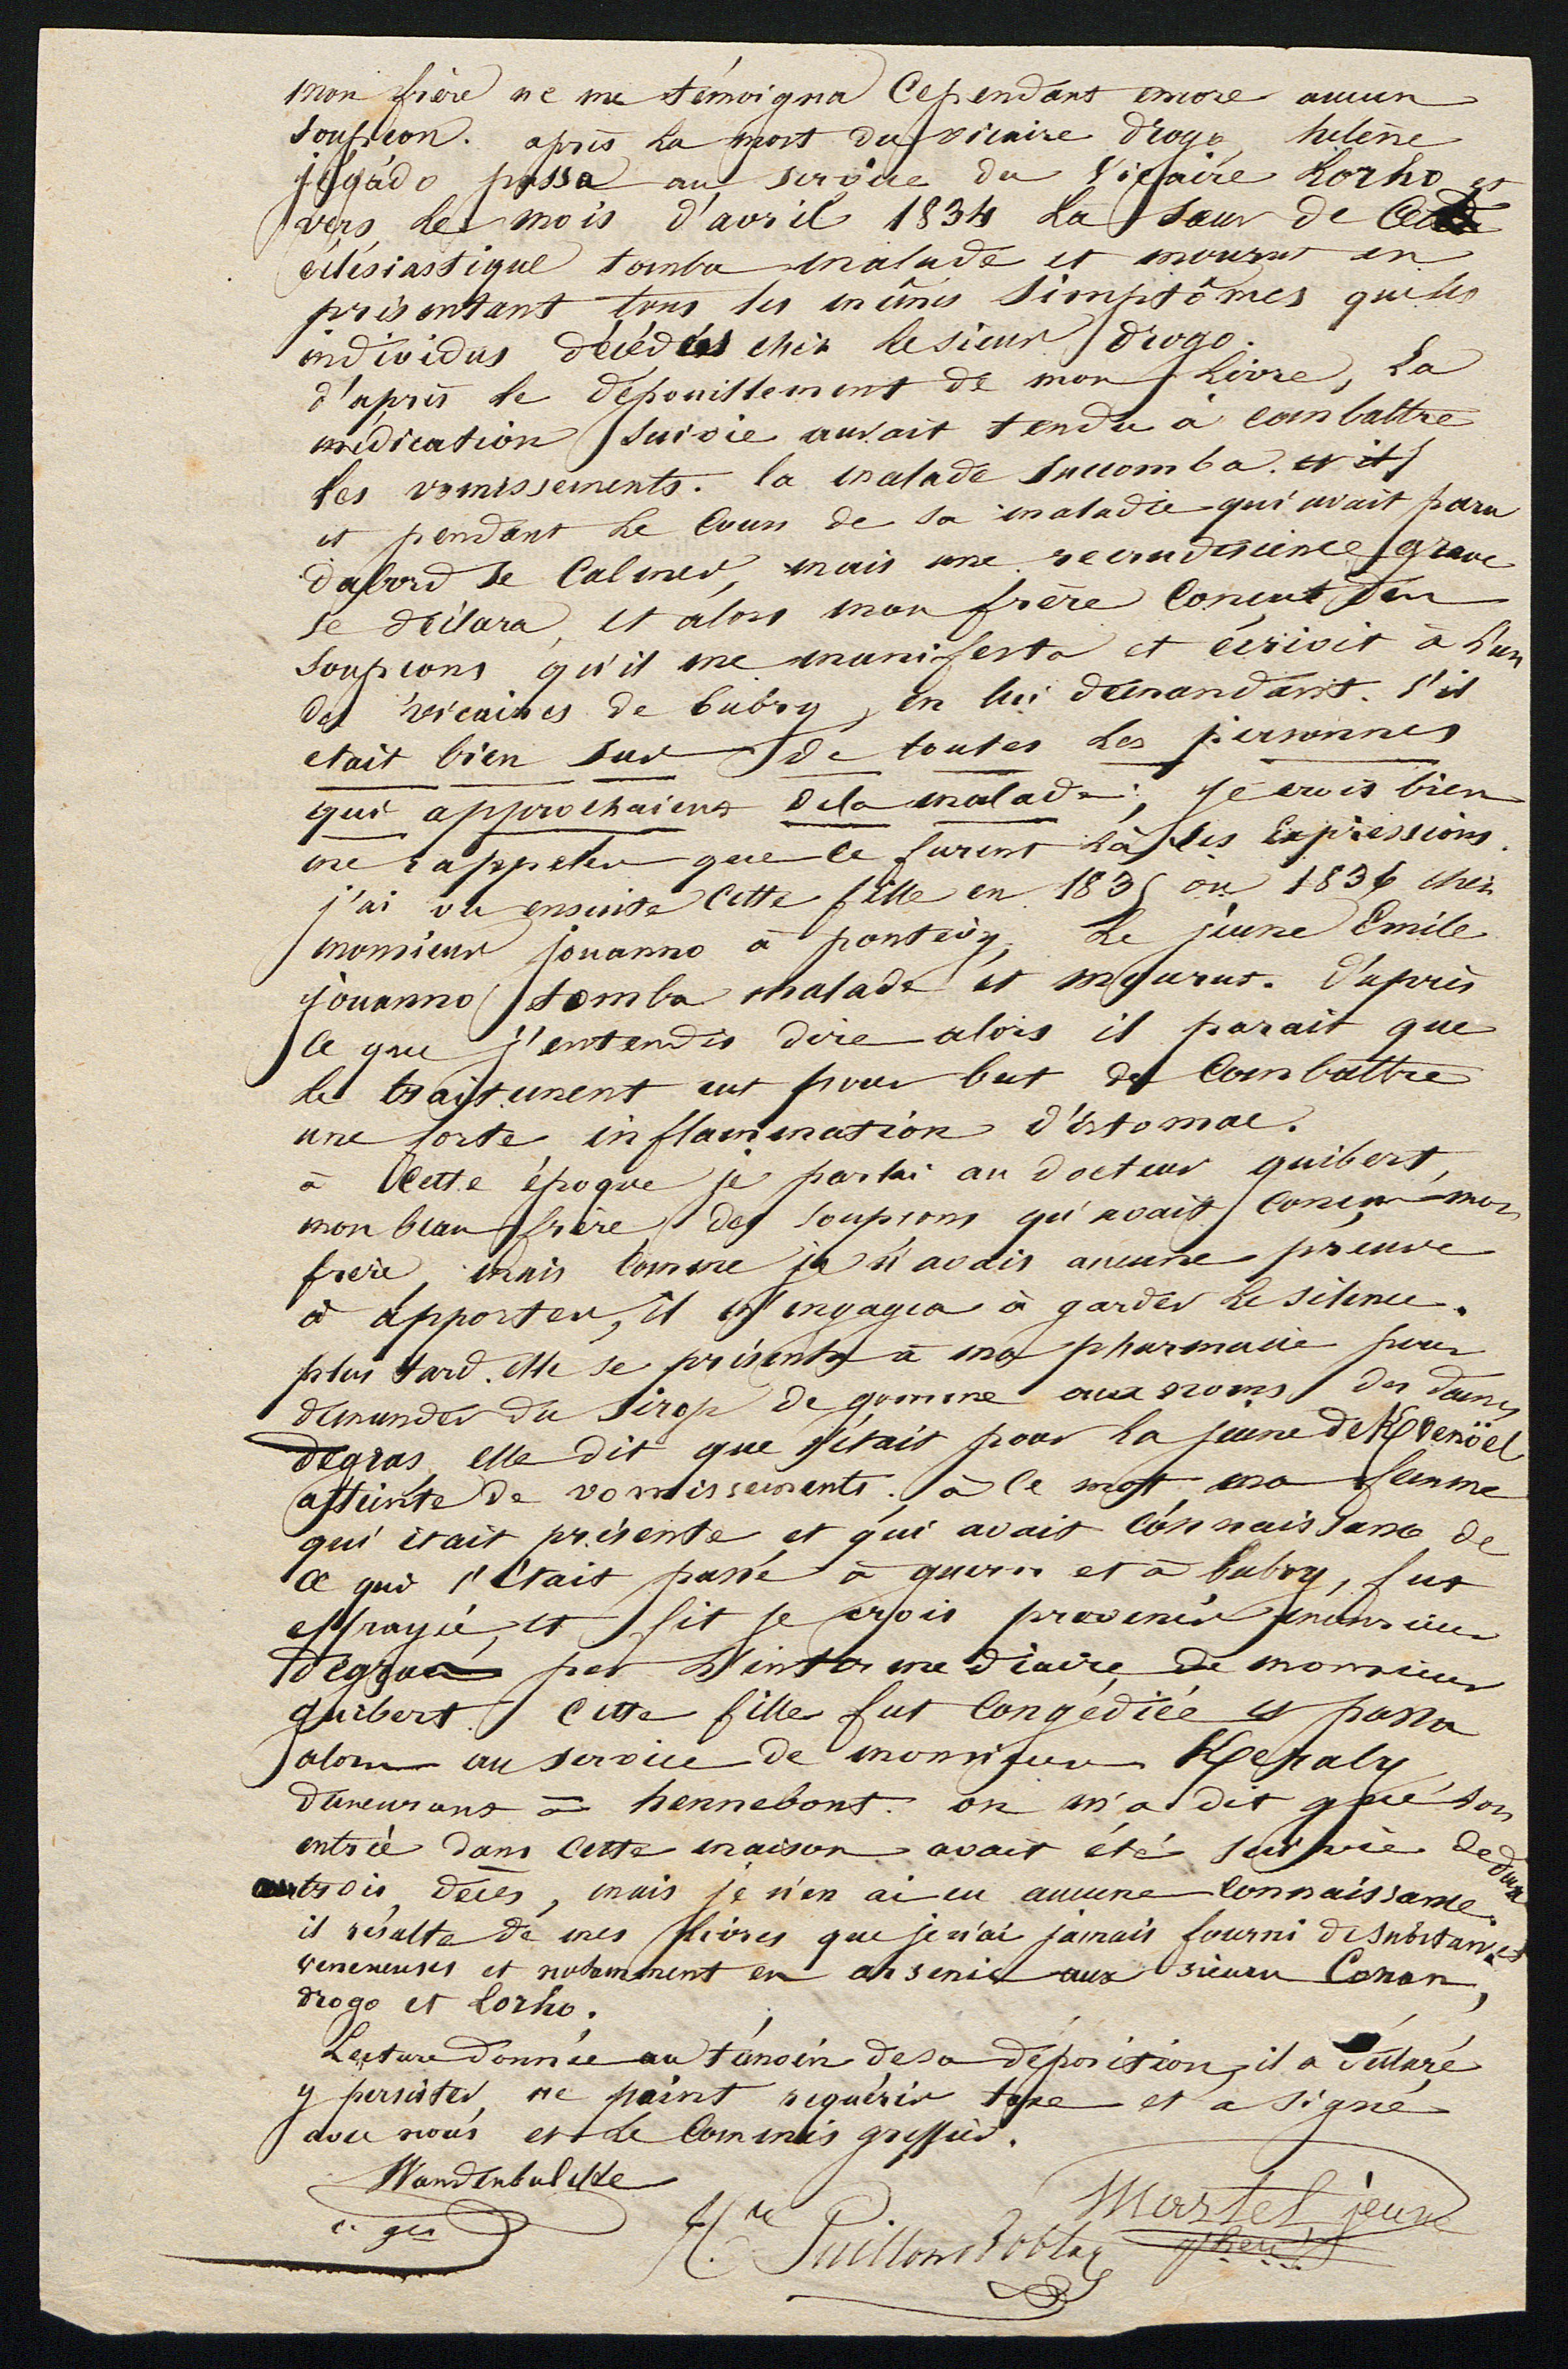 mon frère ne me témoigna Cependant encore aucun
soupçon. après la mort du vicaire drogo, helène
jégado passa au service du Vicaire Lorho et
vers le mois d'avril 1834 la sœur de Cet
éclésiastique tomba malade et mourut en
présentant tous les mêmes simptômes que les
individus décédés chez le sieur drogo.
d'après le dépouillement de mon Livre, La
médication suivie aurait tendu à combattre
les vomissements. la malade succomba. et it
et pendant le Cours de sa maladie qui avait paru
d'abord se Calmer, mais une recrudescence grave
se déclara, et alors mon frère Conçut des
soupçons qu'il me manifesta et écrivit à l'un
des vicaires de bubry, en lui demandant. s'il
etait bien sur de toutes les personnes
qui approchaient de la malade; je crois bien
me rappeler que ce furent là ses Expressions.
j'ai vu ensuite Cette fille en 1835 ou 1836 chez
monsieur jouanno à pontivy, Le jeune Emile
jouanno tomba malade et mourut. d'après
ce que j'entendis dire alors il parait que
le traitement eut pour but de Combattre
une forte inflammation d'estomac.
à Cette époque je parlai au docteur guibert,
mon beau frère des soupçons qu'avait Conçu mon
frère, mais Comme je n'avais aucune preuve
à apporter, il m'engagea à garder le silence.
plus tard. elle se présenta à ma pharmacie pour
demander du Sirop de gomme aux noms des dames
degras, elle dit que c'était pour la jeune de Kvenoël
atteinte de vomissements. à ce mot ma femme
qui était présente et qui avait Connaissance de
ce qui s'était passé à guern et à bubry, fut
effrayée, et fit je crois prevenir monsieur
degras par L'intermediaire de monsieur
guibert. Cette fille fut Congédiée et passa
alors au service de monsieur Kepaly
demeurant à hennebont. on m'a dit que son
entrée dans Cette maison avait été suivie de deux
ou trois décès, mais je n'en ai eu aucune Connaissance.
il résulte de mes livres que je n'ai jamais fourni de substances
veneneuses et notamment en arsenic aux sieurs Conan,
drogo et Lorho.
Lecture donnée au témoin de sa déposition, il a déclaré
y persister, ne point requérir taxe et a signé
avec nous et le Commis greffier.
Martel jeune
c. ger
hre Puillon Boblay phen